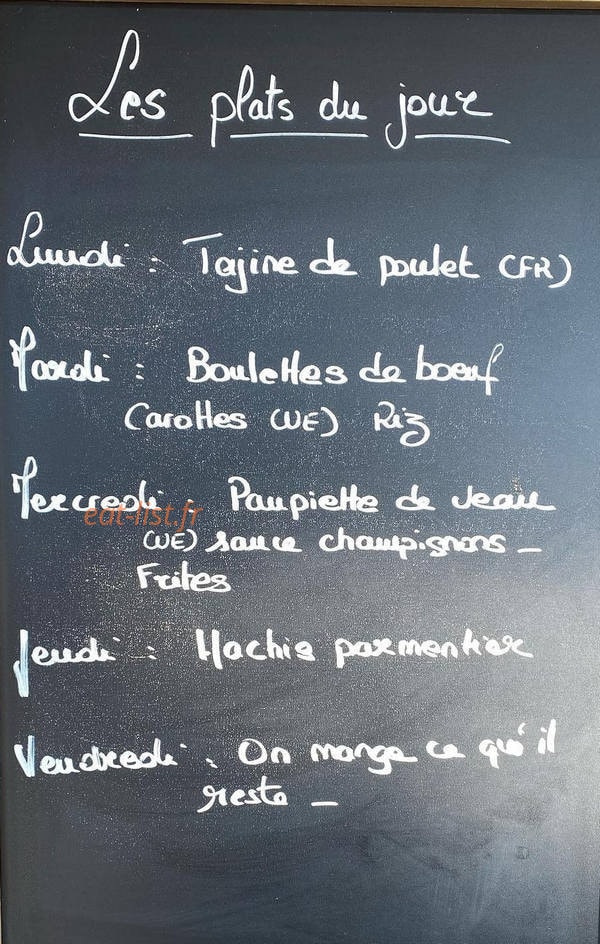 Les plats du jour
Lundi : Tajine de poulet (FR)
Mardi : Boulettes de boeuf
Carottes (UE) Riz
Mercredi : Paupiette de veau
eat-list.fr
(UE) sauce champignons -
Frites
Jeudi : Hachis parmentier
Vendredi : On mange ce qu'il
reste -